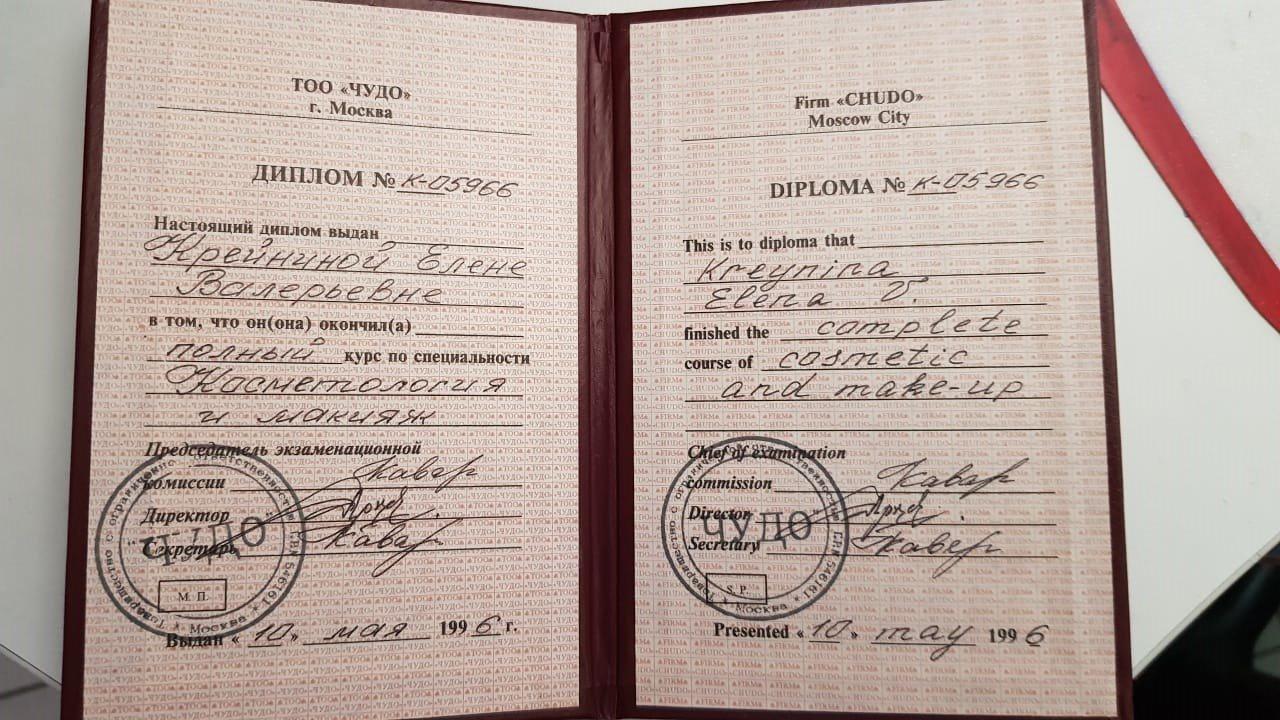 ТОО «ЧУДО»
г. Москва
ДИПЛОМ № К-05966
Настоящий диплом выдан
Крейниной Елене
Валерьевне
в том, что он(она) окончил(а)
полный курс по специальности
Косметология
и макияж
Председатель экзаменационной
комиссии
Директор
Секретарь
ЧУДО
М. П.
Выдан «10» мая 1996 г.
Firm «CHUDO»
Moscow City
DIPLOMA № К-05966
This is to diploma that
Kreynina
Elena V.
finished the complete
course of cosmetic
and make-up
Chief of examination
commission
Director
Secretary
ЧУДО
S. P.
Presented «10» may 1996